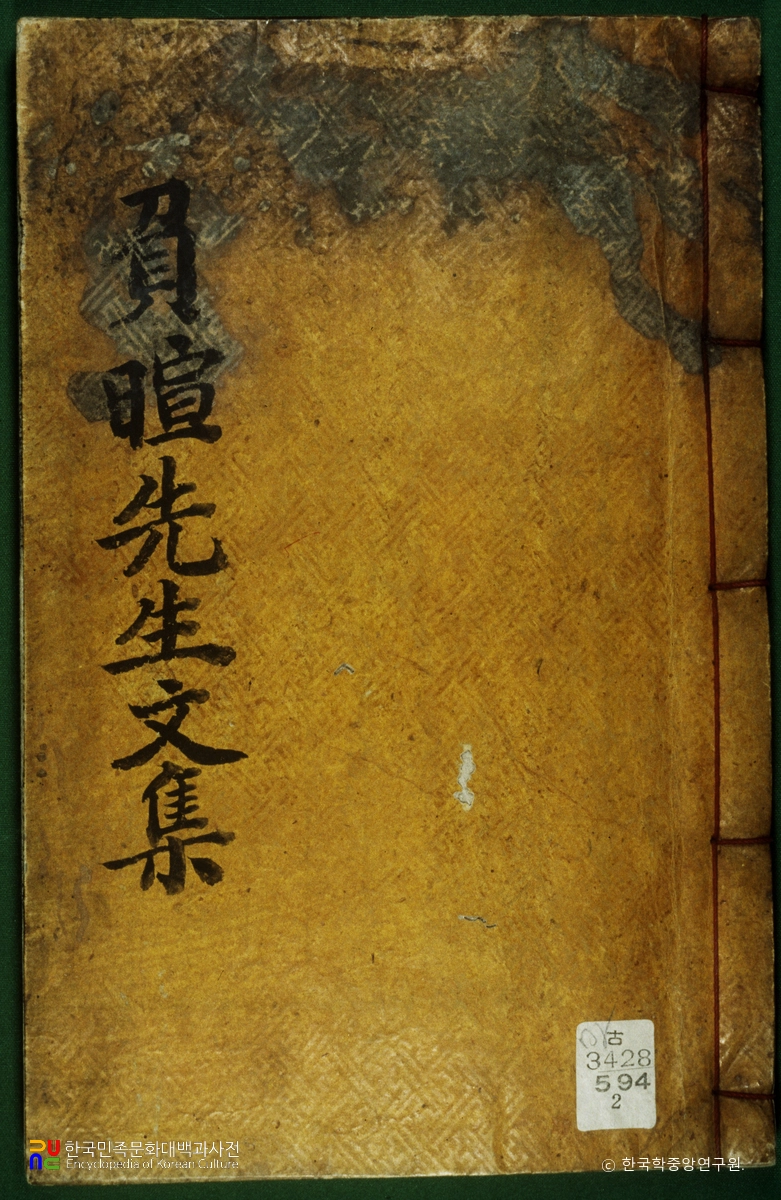 負暄先生文集
古
3428
594
2
한국민족문화대백과사전
Encyclopedia of Korean Culture
ⓒ 한국학중앙연구원.